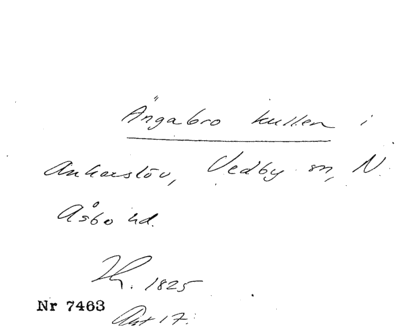 Ängabro kullen i
Ankarslöv, Vedby sn, N.
Åsbo hd.
1825
Nr 7463
Art 17.